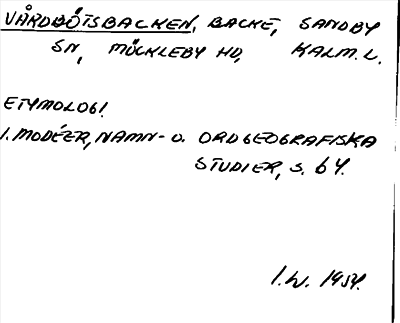 VÅRDBÖTSBACKEN, BACKE, SANDBY
SN, MÖCKLEBY HD, KALM. L.
ETYMOLOGI
I. MODÉER, NAMN- O. ORDGEOGRAFISKA
STUDIER, S. 64.
I.W. 1954.